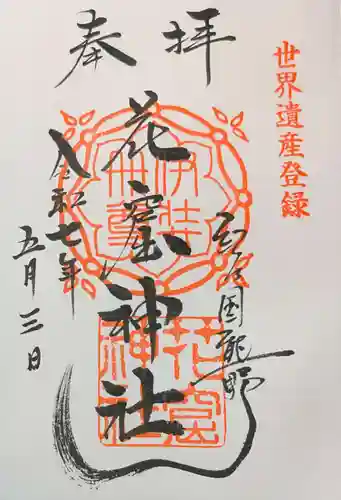 世界遺産登録
奉拝
紀伊国熊野
花窟神社
令和七年
五月三日
花窟
神社